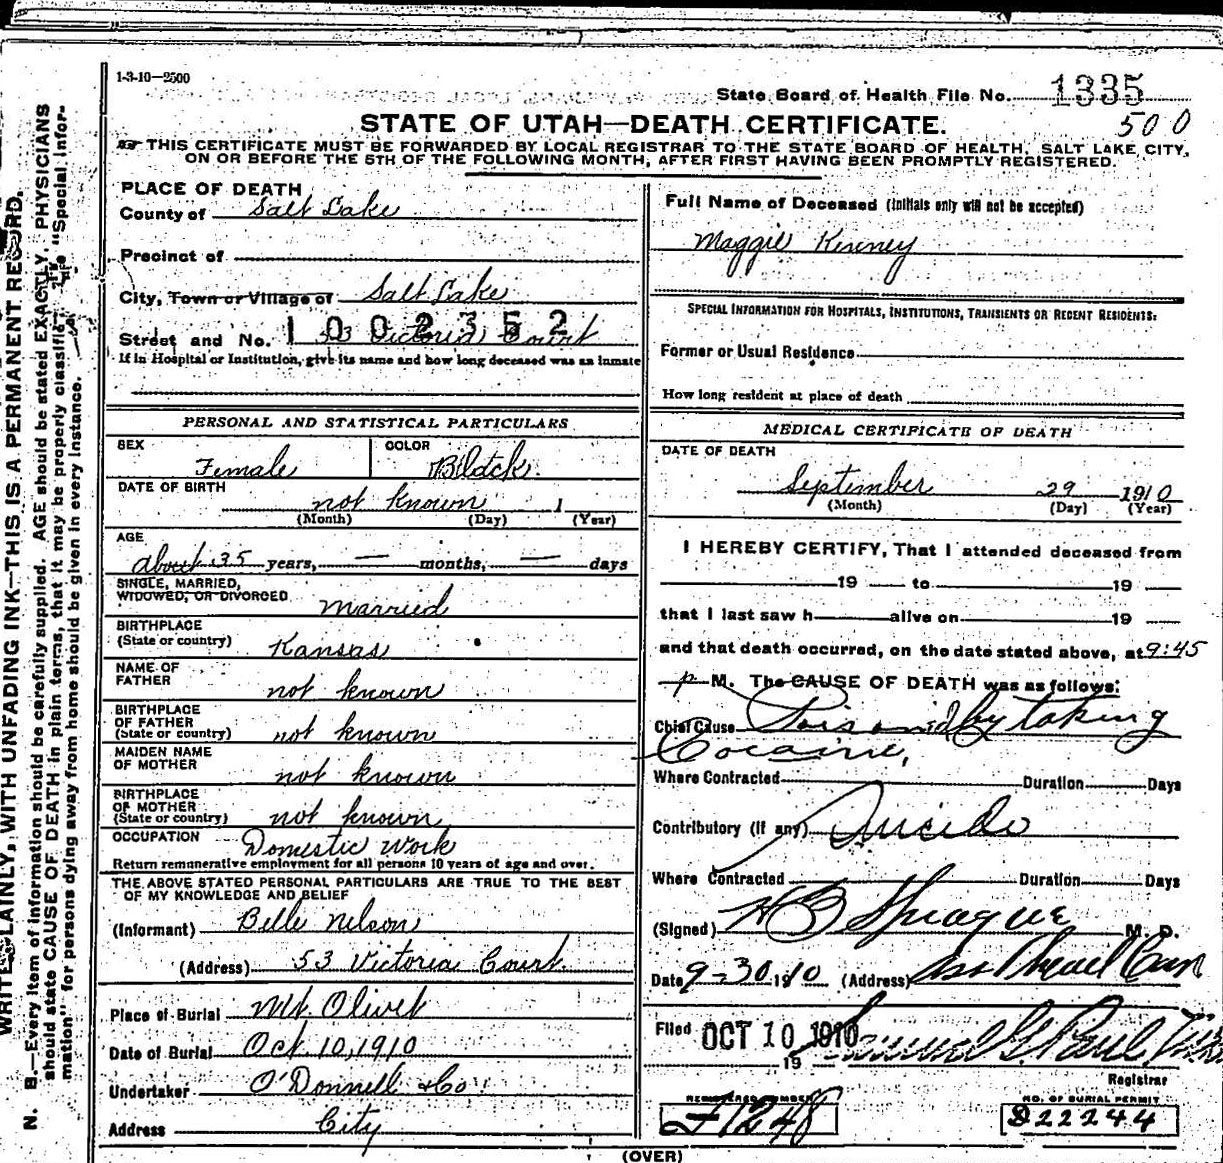 1-3-10—2500
State Board of Health File No. 1335
500
STATE OF UTAH—DEATH CERTIFICATE.
THIS CERTIFICATE MUST BE FORWARDED BY LOCAL REGISTRAR TO THE STATE BOARD OF HEALTH, SALT LAKE CITY,
ON OR BEFORE THE 5TH OF THE FOLLOWING MONTH, AFTER FIRST HAVING BEEN PROMPTLY REGISTERED.
PLACE OF DEATH
County of Salt Lake
Precinct of
City, Town or Village of Salt Lake
1002352
Street and No. 53 Victoria Court
If in Hospital or Institution, give its name and how long deceased was an inmate
PERSONAL AND STATISTICAL PARTICULARS
SEX Female COLOR Black.
DATE OF BIRTH not known 1
(Month) (Day) (Year)
AGE
about 35 years, — months, — days
SINGLE, MARRIED,
WIDOWED, OR DIVORCED married
BIRTHPLACE
(State or country) Kansas
NAME OF
FATHER not known
BIRTHPLACE
OF FATHER
(State or country) not known
MAIDEN NAME
OF MOTHER not known
BIRTHPLACE
OF MOTHER
(State or country) not known
OCCUPATION Domestic work
Return remunerative employment for all persons 10 years of age and over.
THE ABOVE STATED PERSONAL PARTICULARS ARE TRUE TO THE BEST
OF MY KNOWLEDGE AND BELIEF
(Informant) Belle Nelson
(Address) 53 Victoria Court.
Place of Burial Mt. Olivet
Date of Burial Oct. 10, 1910
Undertaker O'Donnell & Co.
Address City
Full Name of Deceased (Initials only will not be accepted)
Maggie Kinney
SPECIAL INFORMATION FOR HOSPITALS, INSTITUTIONS, TRANSIENTS OR RECENT RESIDENTS:
Former or Usual Residence
How long resident at place of death
MEDICAL CERTIFICATE OF DEATH
DATE OF DEATH
September 29 1910
(Month) (Day) (Year)
I HEREBY CERTIFY, That I attended deceased from
19 to 19
that I last saw h alive on 19
and that death occurred, on the date stated above, at 9:45
p M. The CAUSE OF DEATH was as follows:
Chief Cause Poisoned by taking
Cocaine,
Where Contracted Duration Days
Contributory (If any) Suicide
Where Contracted Duration Days
(Signed) H B Sprague M. D.
Date 9-30 1910 (Address)
Filed OCT 10 1910 Samuel G Paul
19
Registrar
REGISTERED NUMBER
1248
NO. OF BURIAL PERMIT
D22244
(OVER)
N. B.—Every item of information should be carefully supplied. AGE should be stated EXACTLY. PHYSICIANS
should state CAUSE OF DEATH in plain terms, that it may be properly classified. The "Special Infor-
mation" for persons dying away from home should be given in every instance.
WRITE PLAINLY, WITH UNFADING INK—THIS IS A PERMANENT RECORD.